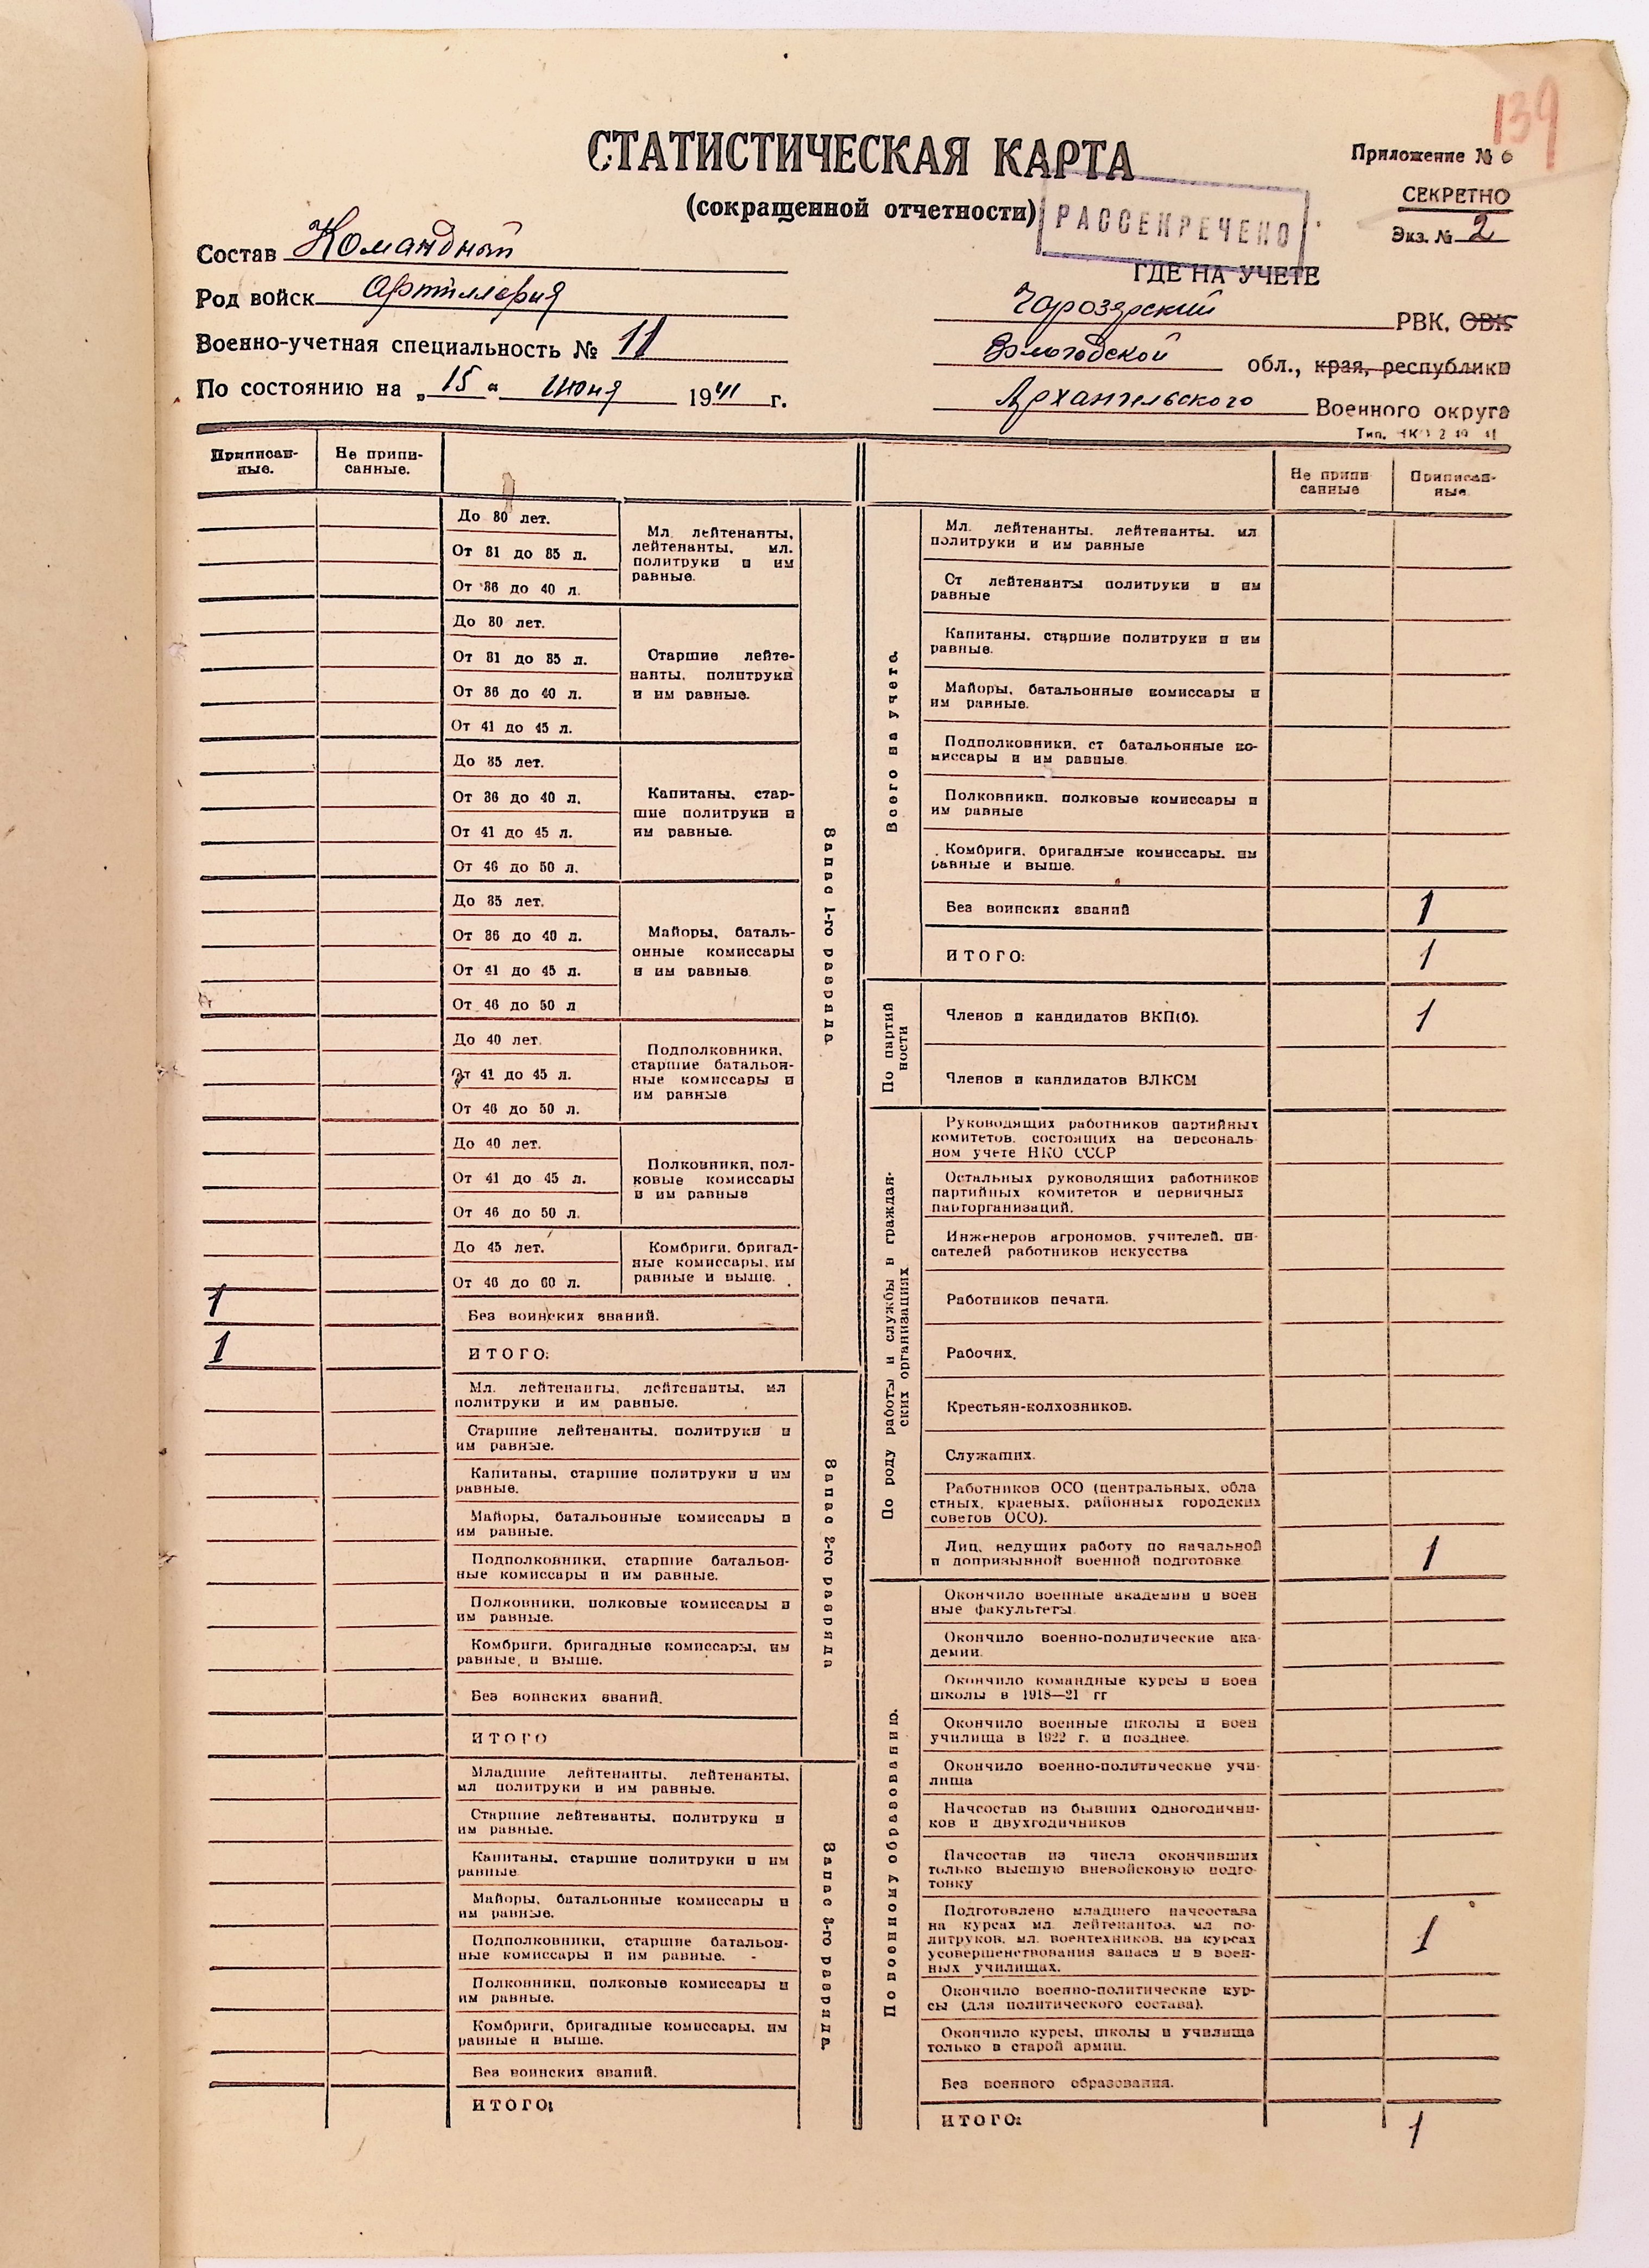 139
СТАТИСТИЧЕСКАЯ КАРТА
(сокращенной отчетности)
Приложение № 6
СЕКРЕТНО
Экз. № 2
РАССЕКРЕЧЕНО
Состав Командный
Род войск Артиллерия
Военно-учетная специальность № 11
По состоянию на „15“ Июня 1941 г.
ГДЕ НА УЧЕТЕ
Чарозерский РВК, ОВК
Вологодской обл., края, республики
Архангельского Военного округа
Приписан-
ные.
Не припи-
санные.
До 30 лет.
От 31 до 35 л.
От 36 до 40 л.
Мл. лейтенанты,
лейтенанты, мл.
политруки и им
равные.
До 30 лет.
От 31 до 35 л.
От 36 до 40 л.
От 41 до 45 л.
Старшие лейте-
нанты, политруки
и им равные.
До 35 лет.
От 36 до 40 л.
От 41 до 45 л.
От 46 до 50 л.
Капитаны, стар-
шие политруки и
им равные.
До 35 лет.
От 36 до 40 л.
От 41 до 45 л.
От 46 до 50 л
Майоры, баталь-
онные комиссары
и им равные
До 40 лет.
От 41 до 45 л.
От 46 до 50 л.
Подполковники,
старшие батальон-
ные комиссары и
им равные
До 40 лет.
От 41 до 45 л.
От 46 до 50 л.
Полковники, пол-
ковые комиссары
и им равные
До 45 лет.
От 46 до 60 л.
Комбриги, бригад-
ные комиссары, им
равные и выше.
1 Без воинских званий.
1 ИТОГО:
Запас 1-го разряда.
Мл. лейтенанты, лейтенанты, мл
политруки и им равные.
Старшие лейтенанты, политруки и
им равные.
Капитаны, старшие политруки и им
равные.
Майоры, батальонные комиссары и
им равные.
Подполковники, старшие батальон-
ные комиссары и им равные.
Полковники, полковые комиссары и
им равные.
Комбриги, бригадные комиссары, им
равные и выше.
Без воинских званий.
ИТОГО
Запас 2-го разряда
Младшие лейтенанты, лейтенанты,
мл политруки и им равные.
Старшие лейтенанты, политруки и
им равные.
Капитаны, старшие политруки и им
равные
Майоры, батальонные комиссары и
им равные.
Подполковники, старшие батальон-
ные комиссары и им равные.
Полковники, полковые комиссары и
им равные.
Комбриги, бригадные комиссары, им
равные и выше.
Без воинских званий.
ИТОГО:
Запас 3-го разряда.
Не припи
санные
Приписан-
ные.
Всего на учете.
Мл. лейтенанты, лейтенанты, мл
политруки и им равные
Ст лейтенанты политруки и им
равные
Капитаны, старшие политруки и им
равные.
Майоры, батальонные комиссары и
им равные.
Подполковники, ст батальонные ко-
миссары и им равные
Полковники, полковые комиссары и
им равные
Комбриги, бригадные комиссары, им
равные и выше.
Без воинских званий 1
ИТОГО: 1
По партий
ности
Членов и кандидатов ВКП(б). 1
Членов и кандидатов ВЛКСМ
По роду работы и службы в граждан-
ских организациях
Руководящих работников партийных
комитетов, состоящих на персональ-
ном учете НКО СССР
Остальных руководящих работников
партийных комитетов и первичных
парторганизаций.
Инженеров агрономов, учителей, пи-
сателей работников искусства
Работников печати.
Рабочих.
Крестьян-колхозников.
Служащих.
Работников ОСО (центральных, обла
стных, краевых, районных городских
советов ОСО).
Лиц, ведущих работу по начальной
и допризывной военной подготовке 1
По военному образованию.
Окончило военные академии и воен
ные факультеты.
Окончило военно-политические ака-
демии.
Окончило командные курсы и воен
школы в 1918—21 гг
Окончило военные школы и воен
училища в 1922 г. и позднее.
Окончило военно-политические учи-
лища
Начсостав из бывших одногодични-
ков и двухгодичников
Начсостав из числа окончивших
только высшую вневойсковую подго-
товку
Подготовлено младшего начсостава
на курсах мл. лейтенантов, мл по-
литруков, мл. воентехников, на курсах
усовершенствования запаса и в воен-
ных училищах. 1
Окончило военно-политические кур-
сы (для политического состава).
Окончило курсы, школы и училища
только в старой армии.
Без военного образования.
ИТОГО: 1